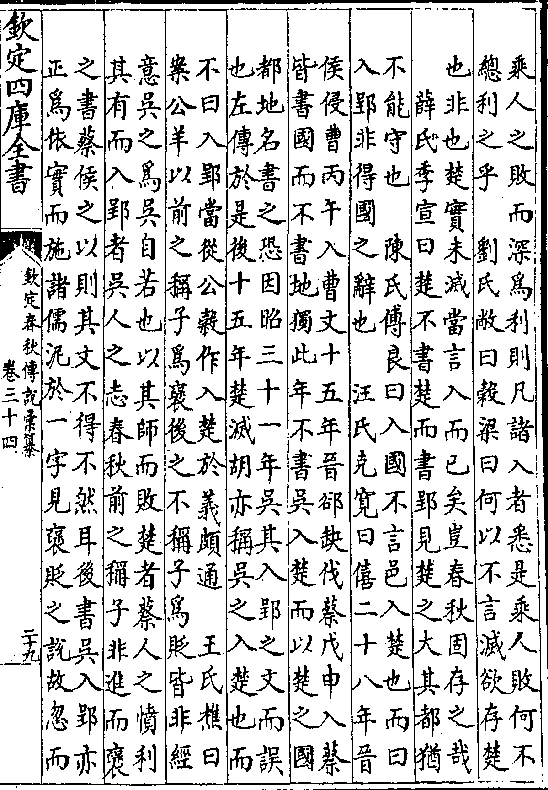 乘人之敗而深爲利則凡諸入者悉是乘人敗何不
總利之乎　劉氏敞曰穀梁曰何以不言滅欲存楚
也非也楚實未滅當言入而已矣豈春秋固存之哉
薛氏季宣曰楚不書楚而書郢見楚之大其都猶
不能守也　陳氏傅良曰入國不言邑入楚也而曰
入郢非得國之辭也　汪氏克寬曰僖二十八年晉
侯侵曹丙午入曹文十五年晉郤缺伐蔡戊申入蔡
皆書國而不書地獨此年不書吳入楚而以楚之國
都地名書之恐因昭三十一年吳其入郢之文而誤
也左傳於是後十五年楚滅胡亦稱吳之入楚也而
不曰入郢當從公穀作入楚於義頗通　王氏樵曰
案公羊以前之稱子爲褒後之不稱子爲貶皆非經
意吳之爲吳自若也以其師而敗楚者蔡人之憤利
其有而入郢者吳人之志春秋前之稱子非進而褒
之書蔡侯之以則其文不得不然耳後書吳入郢亦
正爲依實而施諸儒泥於一字見褒貶之說故忽而
欽定四庫全書
欽定春秋傳說彙纂
卷三十四
二十九